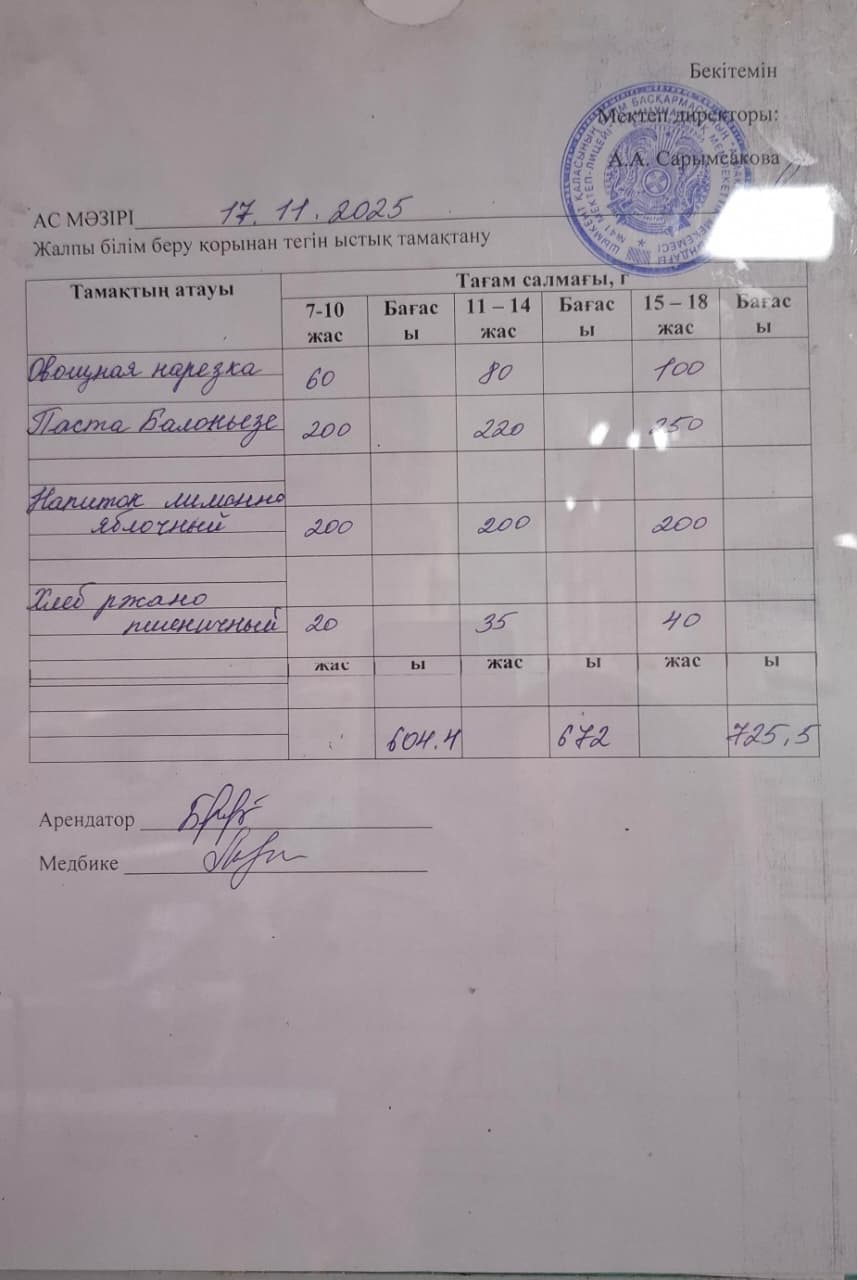 Бекітемін
Мектеп директоры:
А.А. Сарымсакова
АС МӘЗІРІ 17.11.2025
Жалпы білім беру қорынан тегін ыстық тамақтану
Тамақтың атауы Тағам салмағы, г
7-10 жас Бағасы 11 – 14 жас Бағасы 15 – 18 жас Бағасы
Овощная нарезка 60 80 100
Паста Балоньезе 200 220 250
Напиток лимонно
яблочный 200 200 200
Хлеб ржано
пшеничный 20 35 40
жас ы жас ы жас ы
604.4 672 725,5
Арендатор
Медбике